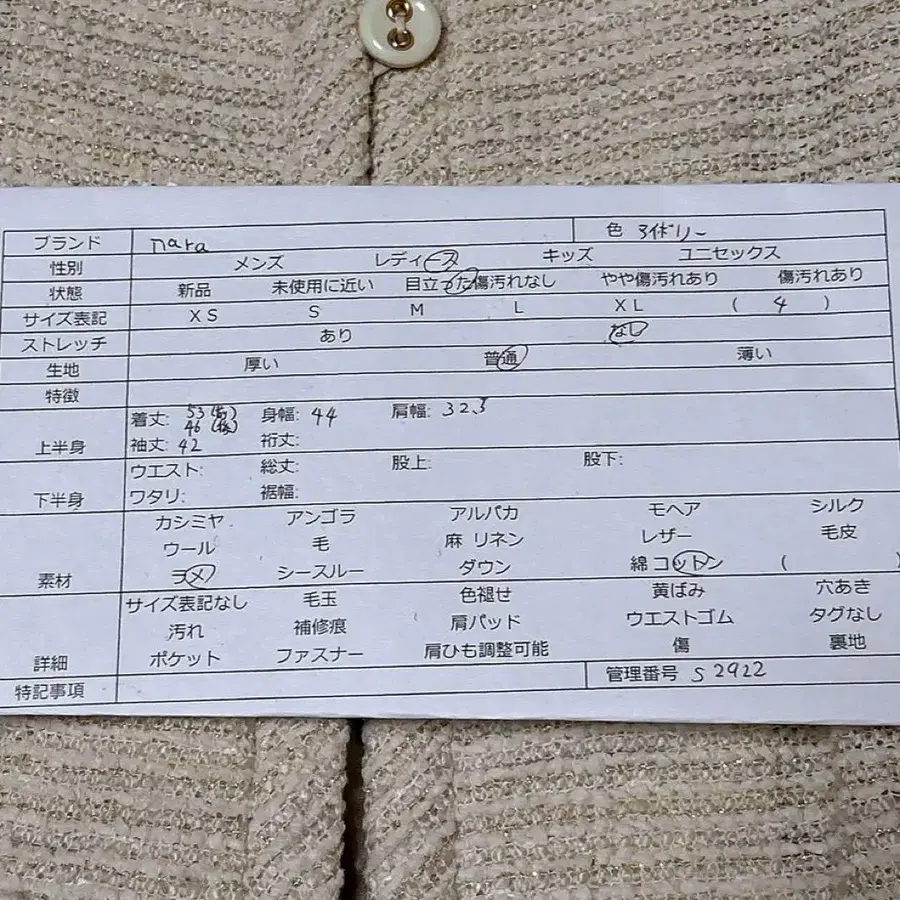 ブランド nara 色 アイボリー
性別 メンズ レディース キッズ ユニセックス
状態 新品 未使用に近い 目立った傷汚れなし やや傷汚れあり 傷汚れあり
サイズ表記 XS S M L XL ( 4 )
ストレッチ あり なし
生地 厚い 普通 薄い
特徴
上半身 着丈: 53(前) 身幅: 44 肩幅: 32.5
46(後)
袖丈: 42 裄丈:
下半身 ウエスト: 総丈: 股上: 股下:
ワタリ: 裾幅:
素材 カシミヤ アンゴラ アルパカ モヘア シルク
ウール 毛 麻 リネン レザー 毛皮
ラメ シースルー ダウン 綿 コットン (
詳細 サイズ表記なし 毛玉 色褪せ 黄ばみ 穴あき
汚れ 補修痕 肩パッド ウエストゴム タグなし
ポケット ファスナー 肩ひも調整可能 傷 裏地
特記事項 管理番号 S2922